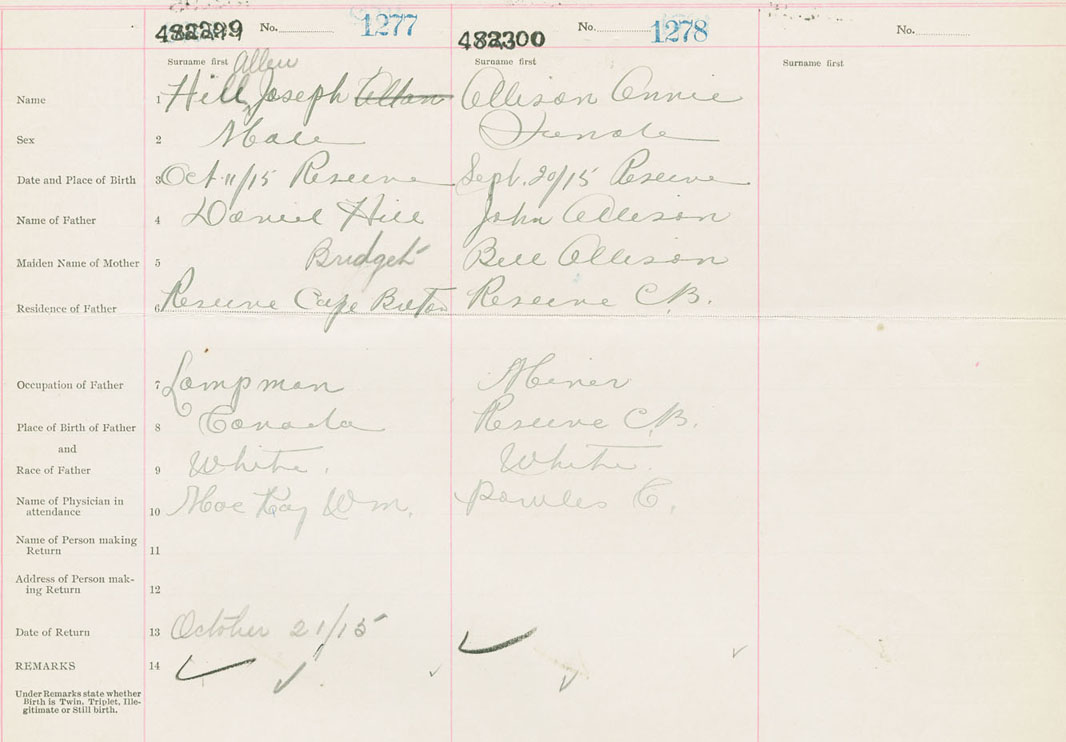 482299 No. 1277 482300 No. 1278 No.
Surname first Allen Surname first Surname first
Name 1 Hill, Joseph Allan Allison Annie
Sex 2 Male Female
Date and Place of Birth 3 Oct. 11/15 Reserve Sept. 20/15 Reserve
Name of Father 4 Daniel Hill John Allison
Maiden Name of Mother 5 Bridget Bell Allison
Residence of Father 6 Reserve Cape Breton Reserve C.B.
Occupation of Father 7 Lampman Miner
Place of Birth of Father 8 Canada Reserve C.B.
and
Race of Father 9 White. White.
Name of Physician in
attendance 10 MacKay Wm. C.
Name of Person making
Return 11
Address of Person mak-
ing Return 12
Date of Return 13 October 21/15
REMARKS 14
Under Remarks state whether
Birth is Twin, Triplet, Ille-
gitimate or Still birth.